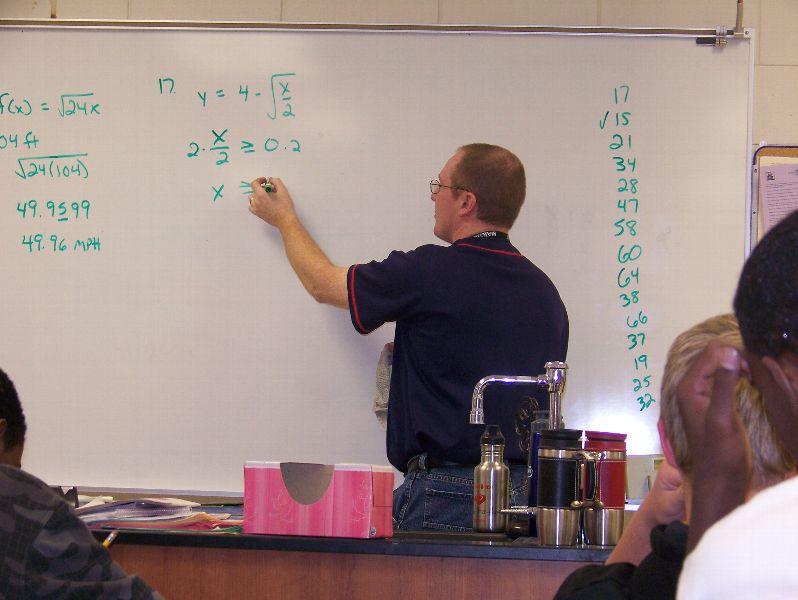 f(x) = √24x
04 ft
√24(104)
49.9599
49.96 MPH
17. y = 4 - √x/2
2 · x/2 ≥ 0 · 2
x ≥
17
✓ 15
21
34
28
47
58
60
64
38
66
37
19
25
32